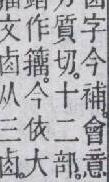 卤字今補會意
方質切今十二部
鍇作籀今依大
文卤从三卤